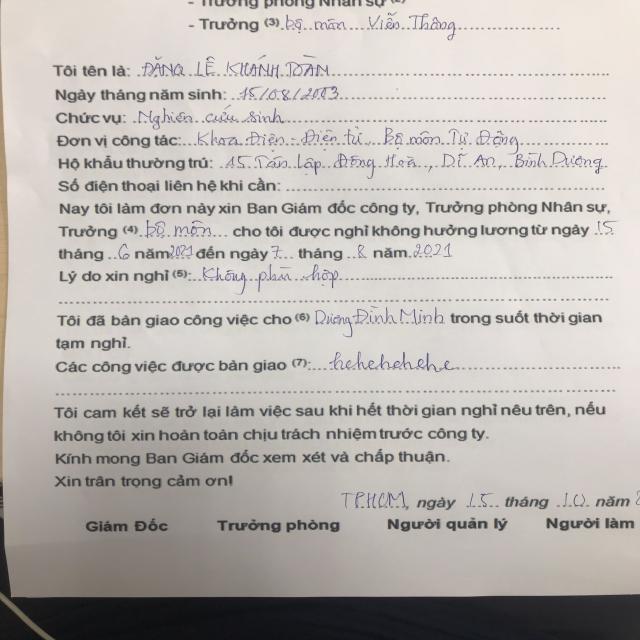 - Trưởng phòng Nhân sự (2)
- Trưởng (3) bộ môn Viễn Thông
Tôi tên là: ĐẶNG LÊ KHÁNH TOÀN
Ngày tháng năm sinh: 15/08/2003
Chức vụ: Nghiên cứu sinh
Đơn vị công tác: Khoa Điện - Điện tử, Bộ môn Tự Động
Hộ khẩu thường trú: 15 Tân Lập Đông Hoà, Dĩ An, Bình Dương
Số điện thoại liên hệ khi cần:
Nay tôi làm đơn này xin Ban Giám đốc công ty, Trưởng phòng Nhân sự,
Trưởng (4) bộ môn cho tôi được nghỉ không hưởng lương từ ngày 15
tháng 6 năm 2021 đến ngày 7 tháng 8 năm 2021
Lý do xin nghỉ (5): Không phù hợp
Tôi đã bàn giao công việc cho (6) Dương Đình Minh trong suốt thời gian
tạm nghỉ.
Các công việc được bàn giao (7): hehehehehe
Tôi cam kết sẽ trở lại làm việc sau khi hết thời gian nghỉ nêu trên, nếu
không tôi xin hoàn toàn chịu trách nhiệm trước công ty.
Kính mong Ban Giám đốc xem xét và chấp thuận.
Xin trân trọng cảm ơn!
TPHCM, ngày 15 tháng 10 năm
Giám Đốc Trưởng phòng Người quản lý Người làm